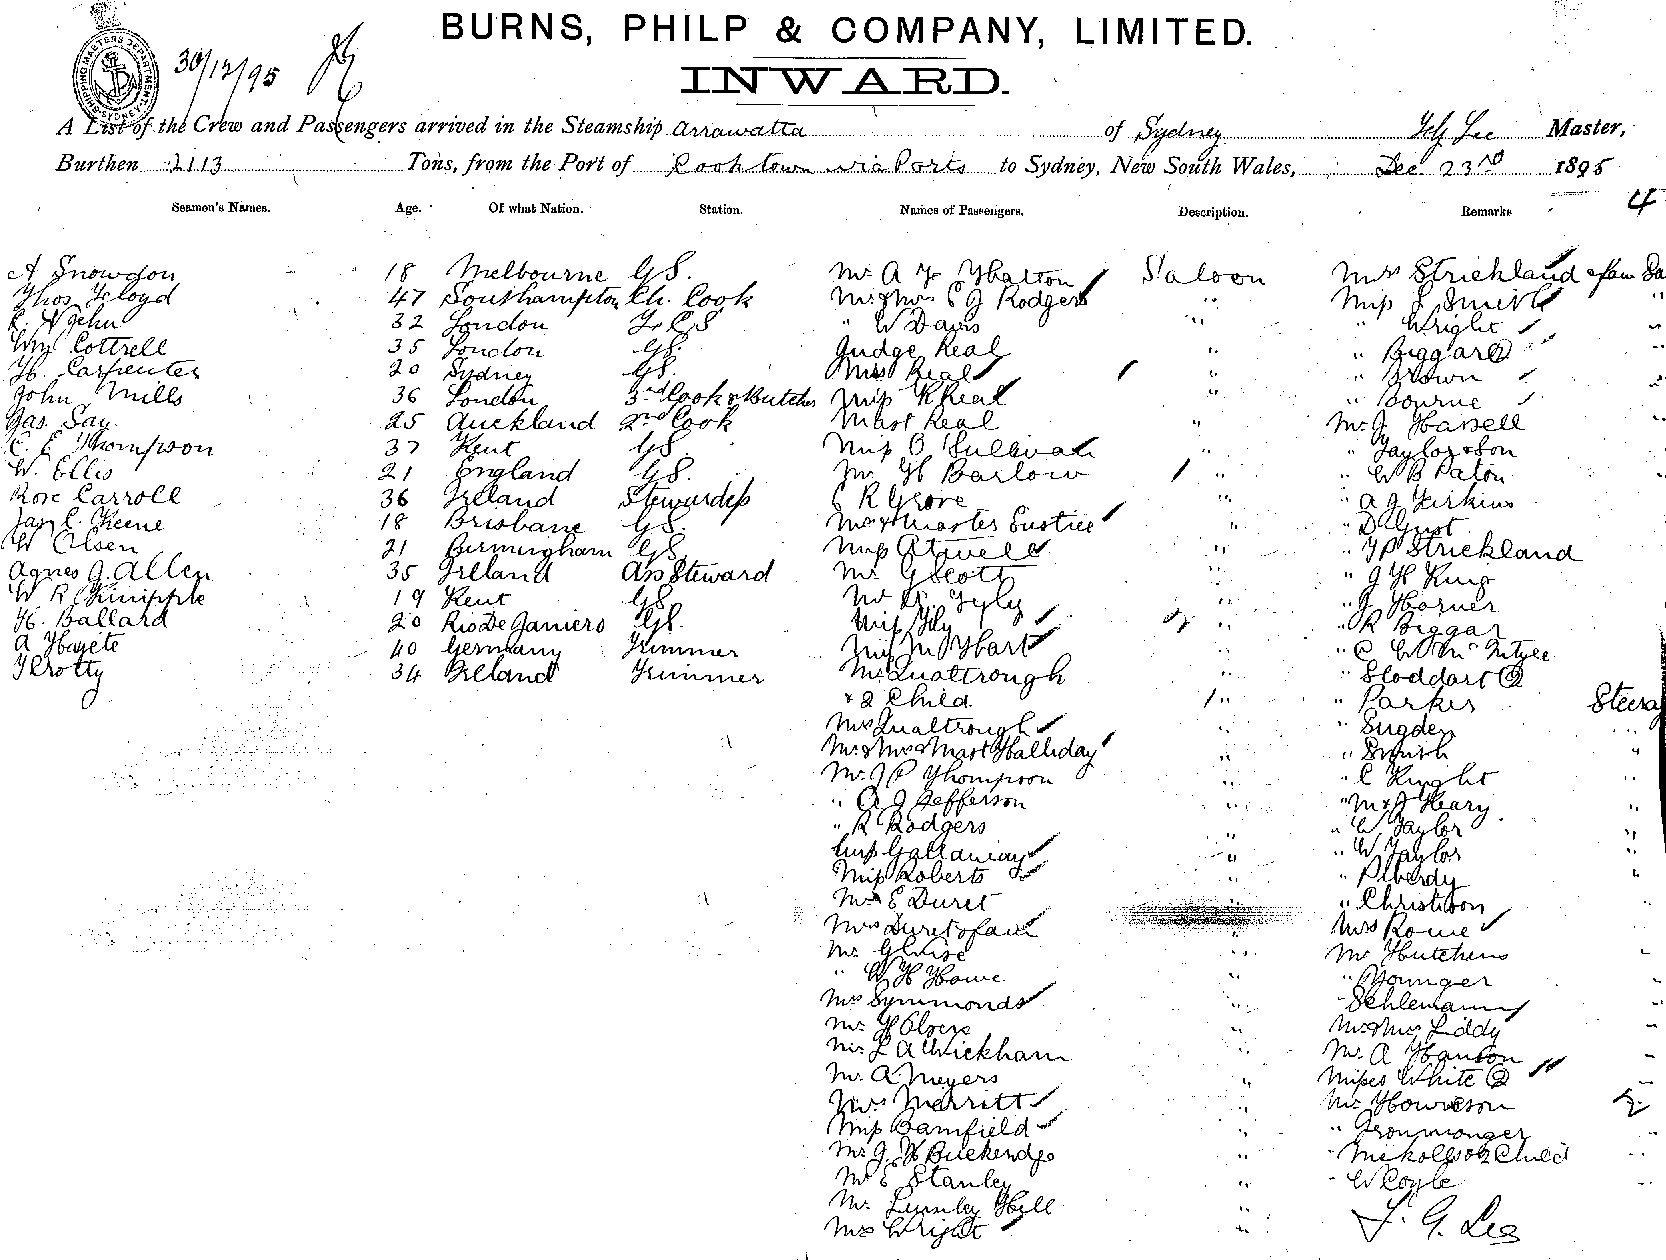 BURNS, PHILP & COMPANY, LIMITED.
INWARD.
30/12/95
A List of the Crew and Passengers arrived in the Steamship Arrawatta of Sydney F G Lee Master,
Burthen 2113 Tons, from the Port of Cooktown via Ports to Sydney, New South Wales, Dec 23rd 1895
4
Seamen's Names. Age. Of what Nation. Station. Names of Passengers. Description. Remarks
A Snowdon 18 Melbourne GS. Mr A F Hatton Saloon Mrs Strickland & fam Sa
Thos Floyd 47 Southampton Ch. Cook Mr & Mrs C J Rodgers " Miss J Smith "
John 32 London F.C.S " W Davis " " Wright "
Wm Cottrell 35 London GS. Judge Real " " Biggar 2 "
H. Carpenter 20 Sydney GS. Mrs Real " " Brown "
John Mills 36 London 3rd Cook & Butcher Miss K Real " " Bourne "
Jas Say 25 Auckland 2nd Cook Mast Real " Mr J Hassell "
C. E Thompson 37 Kent GS. Miss O'Sullivan " Taylor & Son
W. Ellis 21 England GS. Mr H Barlow " " W B Paton
Rose Carroll 36 Ireland Stewardess C R Grove " " A J Firkins
Jas C. Keene 18 Brisbane GS. Mrs & Master Eustice " "
W Olsen 21 Birmingham GS. Miss Atwell " " Strickland
Agnes J. Allen 35 Ireland Ass Steward Mr G Scott " " J H King
W R Knipple 19 Kent GS Mr Fyly " " J Horner
H. Ballard 20 Rio De Janiero GS. Miss Fly " " R Biggar
A Hayete 40 Germany Trimmer Miss M Hart " " C W McIntyre
T Crotty 34 Ireland Trimmer Mr Qualtrough " " Stoddart 2
& 2 Child. " " Parker Steerag
Mrs Qualtrough " " Sugden "
Mr & Mrs & Mast Halliday " " Smith "
Mr J P Thompson " " C Knight "
" A J Jefferson " " M & J Heary "
" R Rodgers " " W Taylor "
Miss Gallaway " " W Taylor "
Miss Roberts " "
Mr E Duret " " Christison
Mrs Duret & fam " Mrs Rowe
Mr G Wise " Mr Hutchens
" W H Howe " " Younger
Mrs Symmonds " " Schlemann
Mr H Olsen " Mr & Mrs Liddy
Mr L A Wickham " Mr A Hanson
Mr. A. Meyers " Misses White 2
Mrs Merritt " Mr Howieson
Miss Bamfield " " Ironmonger
Mr J. H Buckendge " " Nickolls & 2 Child
Mr E Stanley " " W Coyle
Mr Lumley Hill "
Mrs Wright "
F. G. Lee